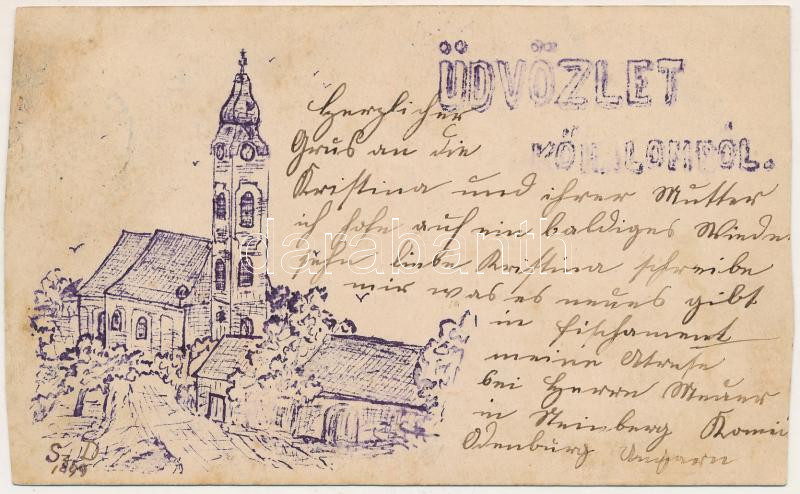 ÜDVÖZLET
KŐHALOMRÓL.
Herzlicher
Grus an die
Kristina und ihrer Mutter
ich hofe auf ein baldiges Wiede-
sehn liebe Kristina schreibe
mir was es neues gibt
in Fischament
meine Atrese
bei Herrn Meuer
in Steinberg Komi
Odenburg Ungarn
Sz D
1899
darabanth